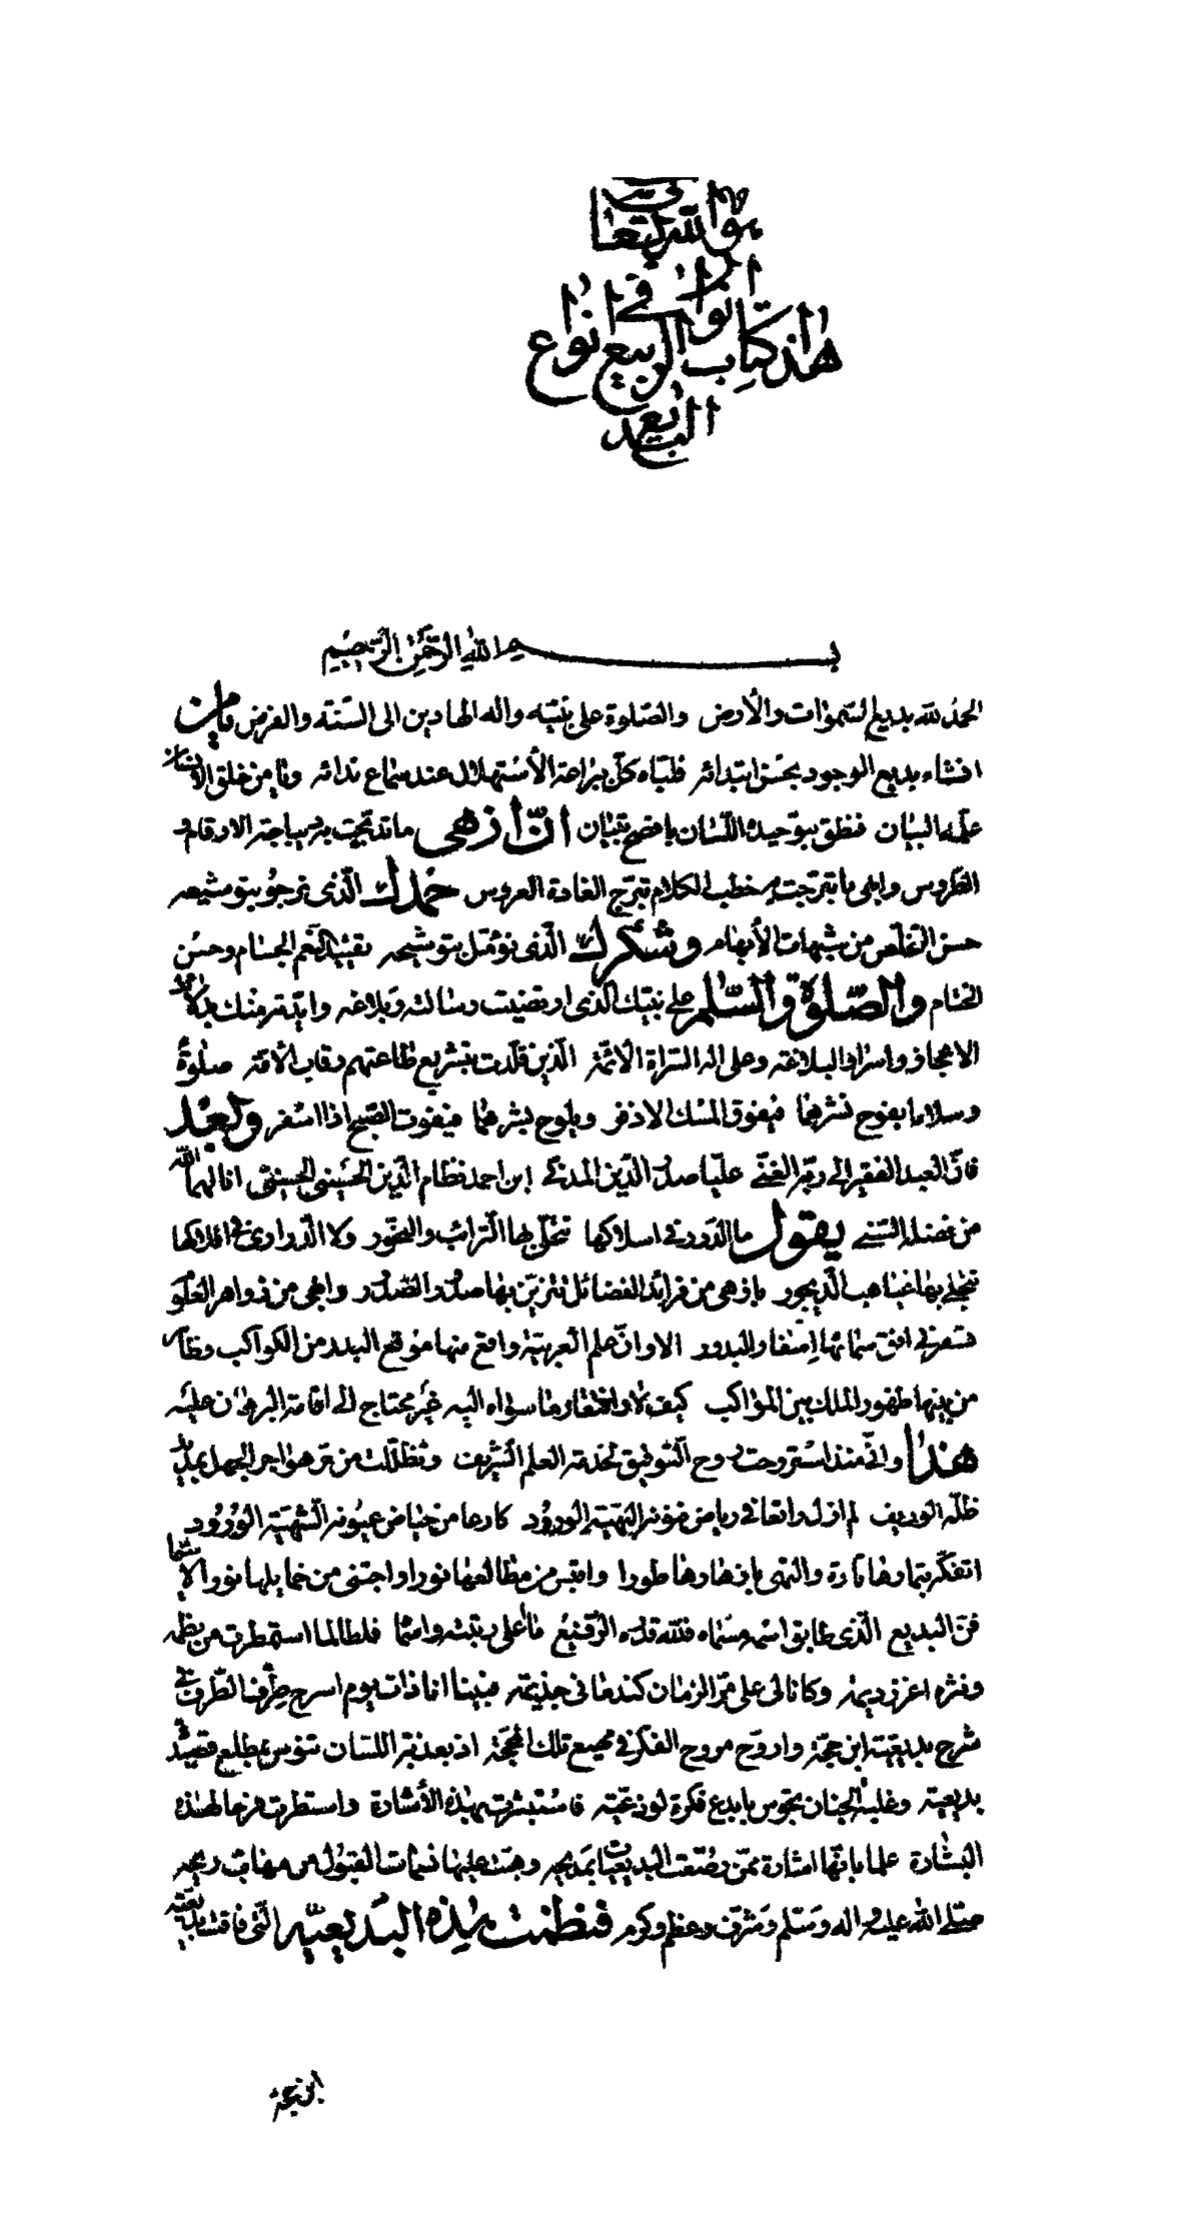 هو الله تعالى
هذا كتاب انوار الربيع في انواع
البديع
بسم الله الرحمن الرحيم
الحمد لله بديع السموات والأرض والصلوة على نبيّه واله الهادين الى السنّة والفرض يا من
افشاء بديع الوجود بحسن ابتدائه فلبّاه كلّ ببراعة الأستهلال عند سماع ندائه ويا من خلق الانسان
علّمه البيان فنطق بتوحيده اللّسان بافصح تبيان انّ أزهى ما تدبّجت به ديباجة الاوقام و
الطروس وابهى ما تبرّجت به خطب الكلام تبرّج الغادة العروس حمدك الّذى نرجو بتوشيعه
حسن التخلّص من شبهات الأبهام وشكرك الّذى نؤمّل بتوشيحه تقييد النّعم الجسام وحسن
الختام والصّلوة والسّلم على نبيّك الّذى ارتضيت رسالته وبلاغه وايّدته منك بدلائل
الاعجاز واسرار البلاغة وعلى اله السّراة الأئمّة الّذين قلّدت بتشريع طاعتهم رقاب الأمّة صلوةً
وسلاما يفوح نشرهما فيفوق المسك الاذفر ويلوح بشرهما فيفوت الصّبح اذا اسفر وبعد
فانّ العبد الفقير الى ربّه الغنّى عليّا صدر الدّين المدنّى ابن احمد نظام الدّين الحسينى الحسنى انا لهما الله
من فضله السّنى يقول ما الدّرر فى اسلاكها تتحلّى بها التّرائب والنّحور ولا الدّرارى فى افلاكها
تنجلى بها غياهب الدّيجور بازهى من فرائد الفضائل تتزيّن بها صدور الصّدور وابهى من زواهر العلو
تسفر فى افق سمائها إسفار البدور الا وانّ علم العربيّة واقع منها موقع البدر من الكواكب وظاهر
من بينها ظهور الملك بين المواكب كيف لا وافتقار ما سواه اليه غير محتاج الى اقامة البرهان عليه
هذا وانّى منذ استروحت روح التّوفيق لخدمة العلم الشّريف وتظلّلت من حرّ هواجر الجهل بمديد
ظلّه الوريف لم ازل راتعا فى رياض فنونه البهيّة الورود كارعا من حياض عيونه الشّهيّة الورود
اتفكّه بثمارها تارة والتهى بازهارها طورا واقتبس من مطالعها نورا واجتنى من خمايلها نورا لا سيّما
فنّ البديع الّذى طابق اسمه مسمّاه فللّه قدره الرّفيع ما أعلى رتبته واسمٰا فلطالما استمطرت من نظمه
ونثره اغزر ديمة وكانا لى على مرّ الزمان كندمانى جذيمة فبينا انا ذات يوم اسرح طرف الطّرف فى
شرح بديعيّة ابن حجّة واروّح مروح الفكر فى مهيع تلك المحجّة اذ بعذبة اللسان تنوس بمطلع قصيدة
بديعيّة وغلبة الجنان تجوس بابدع فكرة لوذعيّة فاستبشرت بهذه الأشارة واستطرت فرحا لهذه
البشارة علما بانّها اشارة ممّن رصّعت البديعيّات بمديحه وهبّت عليها نسمات القبول من مهابّ ريحه
صلّى الله عليه واله وسلّم وشرّف وعظم وكرم فنظمت هذه البديعيّه الّتى فاقت بديعيّة
ابن حجّة